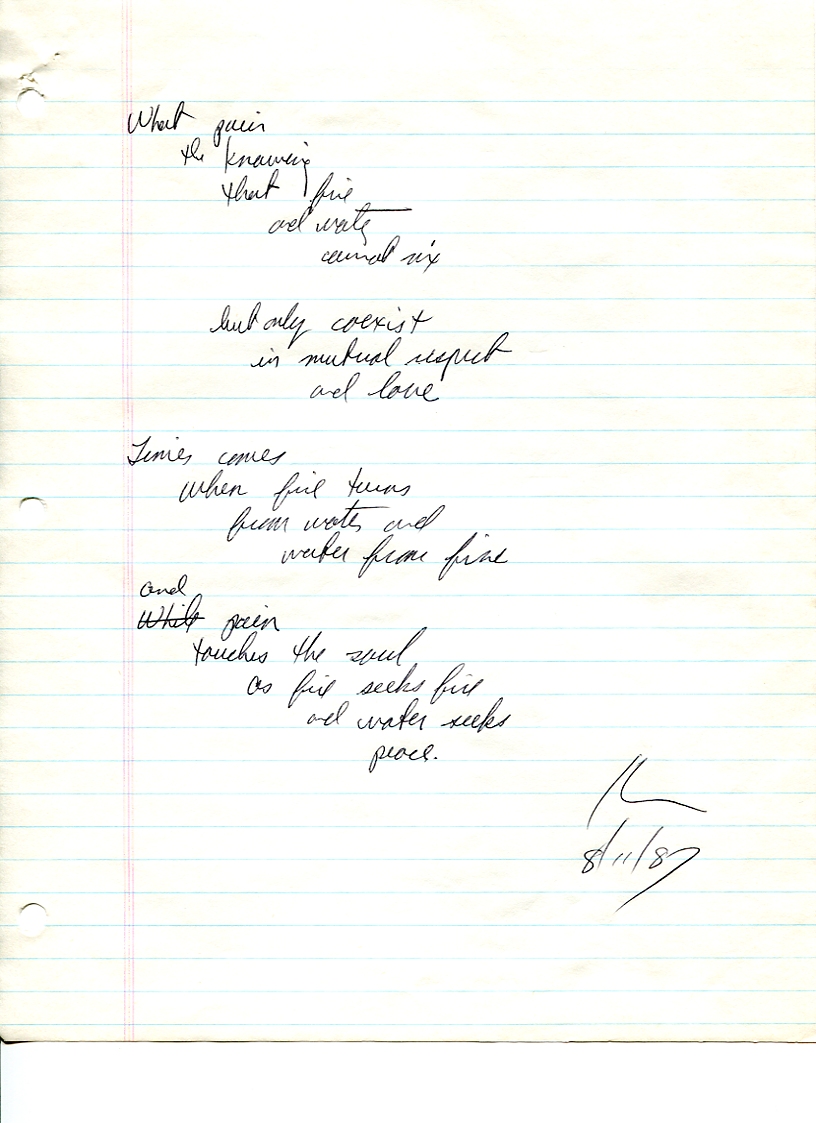 What pain
the knowing
that fire
and water
cannot mix
but only coexist
in mutual respect
and love
Times comes
when fire turns
from water and
water from fire
and
While pain
touches the soul
as fire seeks fire
and water seeks
peace.
8/11/87